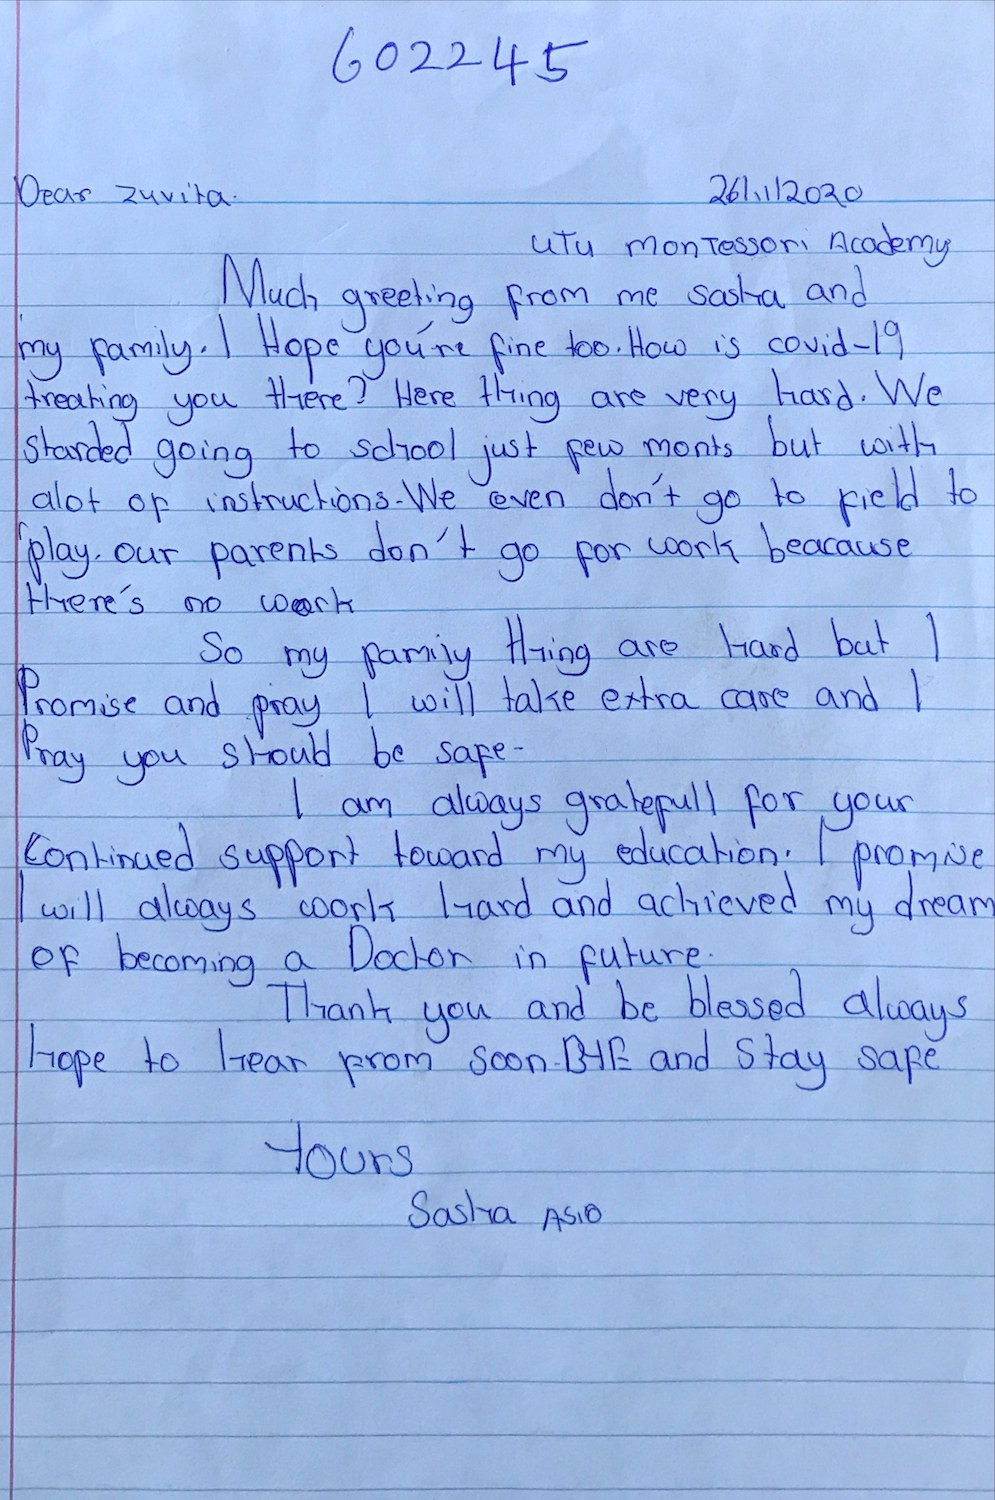 602245
Dear Zuvita. 26/11/2020
UTU Montessori Academy
Much greeting from me Sasha and
my family. I Hope you're fine too. How is covid-19
treating you there? Here thing are very hard. We
starded going to school just few monts but with
alot of instructions-We even don't go to field to
play. our parents don't go for work beacause
there's no work
So my family thing are hard but I
Promise and pray I will take extra care and I
Pray you should be safe-
I am always gratefull for your
Continued support toward my education. I promise
I will always work hard and achieved my dream
of becoming a Doctor in future.
Thank you and be blessed always
hope to hear from soon-BYE and Stay safe
Yours
Sasha ASIO